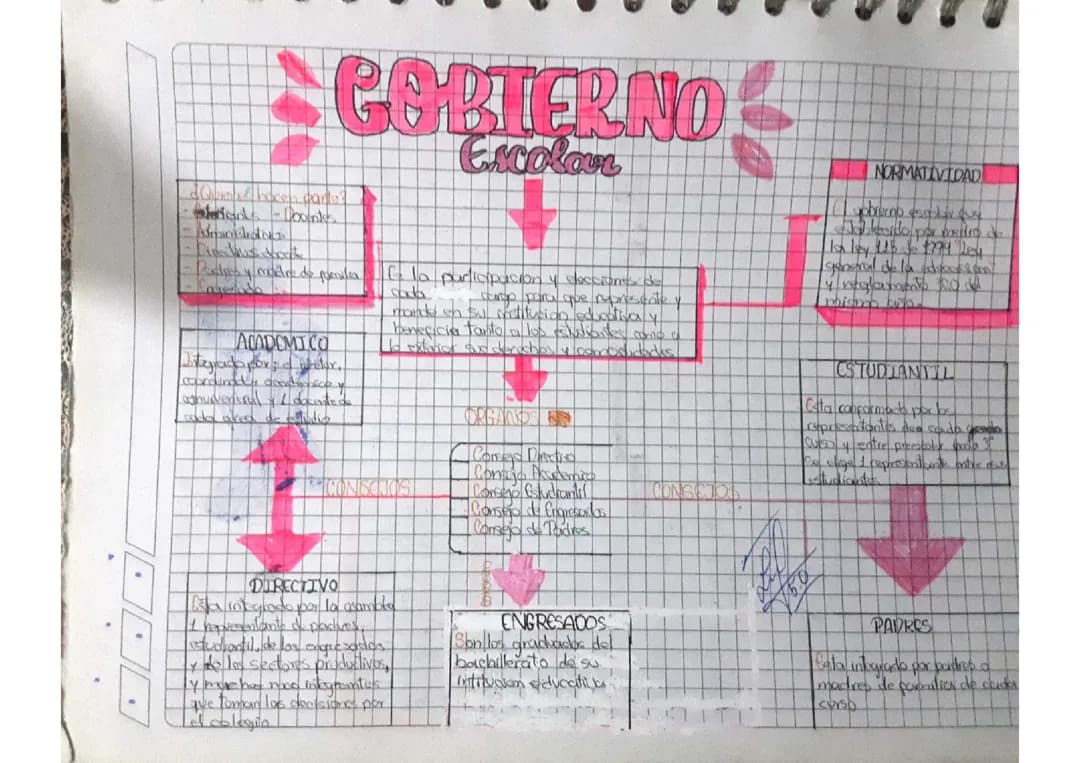 GOBIERNO
Escolar
¿Quienes hacen parte?
- Docentes
- Padres y madre de familia
- Egresado
NORMATIVIDAD
El gobierno escolar fue
establecido por medio de
la ley 115 de 1994 ley
general de la educacion
y reglamento
mismo
Es la participacion y elecciones de
cada cargo para que represente y
mande en su institucion educativa y
beneficie tanto a los estudiantes como a
la exterior sus derechos y comodidades
ACADEMICO
Integrado por: el rector,
coordinador academico y
y 1 docente de
cada area de estudio
ESTUDIANTIL
Esta conformado por los
representantes de cada
curso y entre preescolar hasta 3°
se elige 1 representante entre
estudiantes
ORGANOS
Consejo Directivo
Consejo Academico
Consejo Estudiantil
Consejo de Engresados
Consejo de Padres
CONSEJOS
CONSEJOS
5.0
DIRECTIVO
Esta integrado por la
1 representante de padres,
estudiantil, de los engresados
y de los sectores productivos,
y muchos mas integrantes
que toman las decisiones por
el colegio
ENGRESADOS
Son los graduados del
bachillerato de su
intitucion educativa
PADRES
Esta integrado por padres o
madres de familia de cada
curso